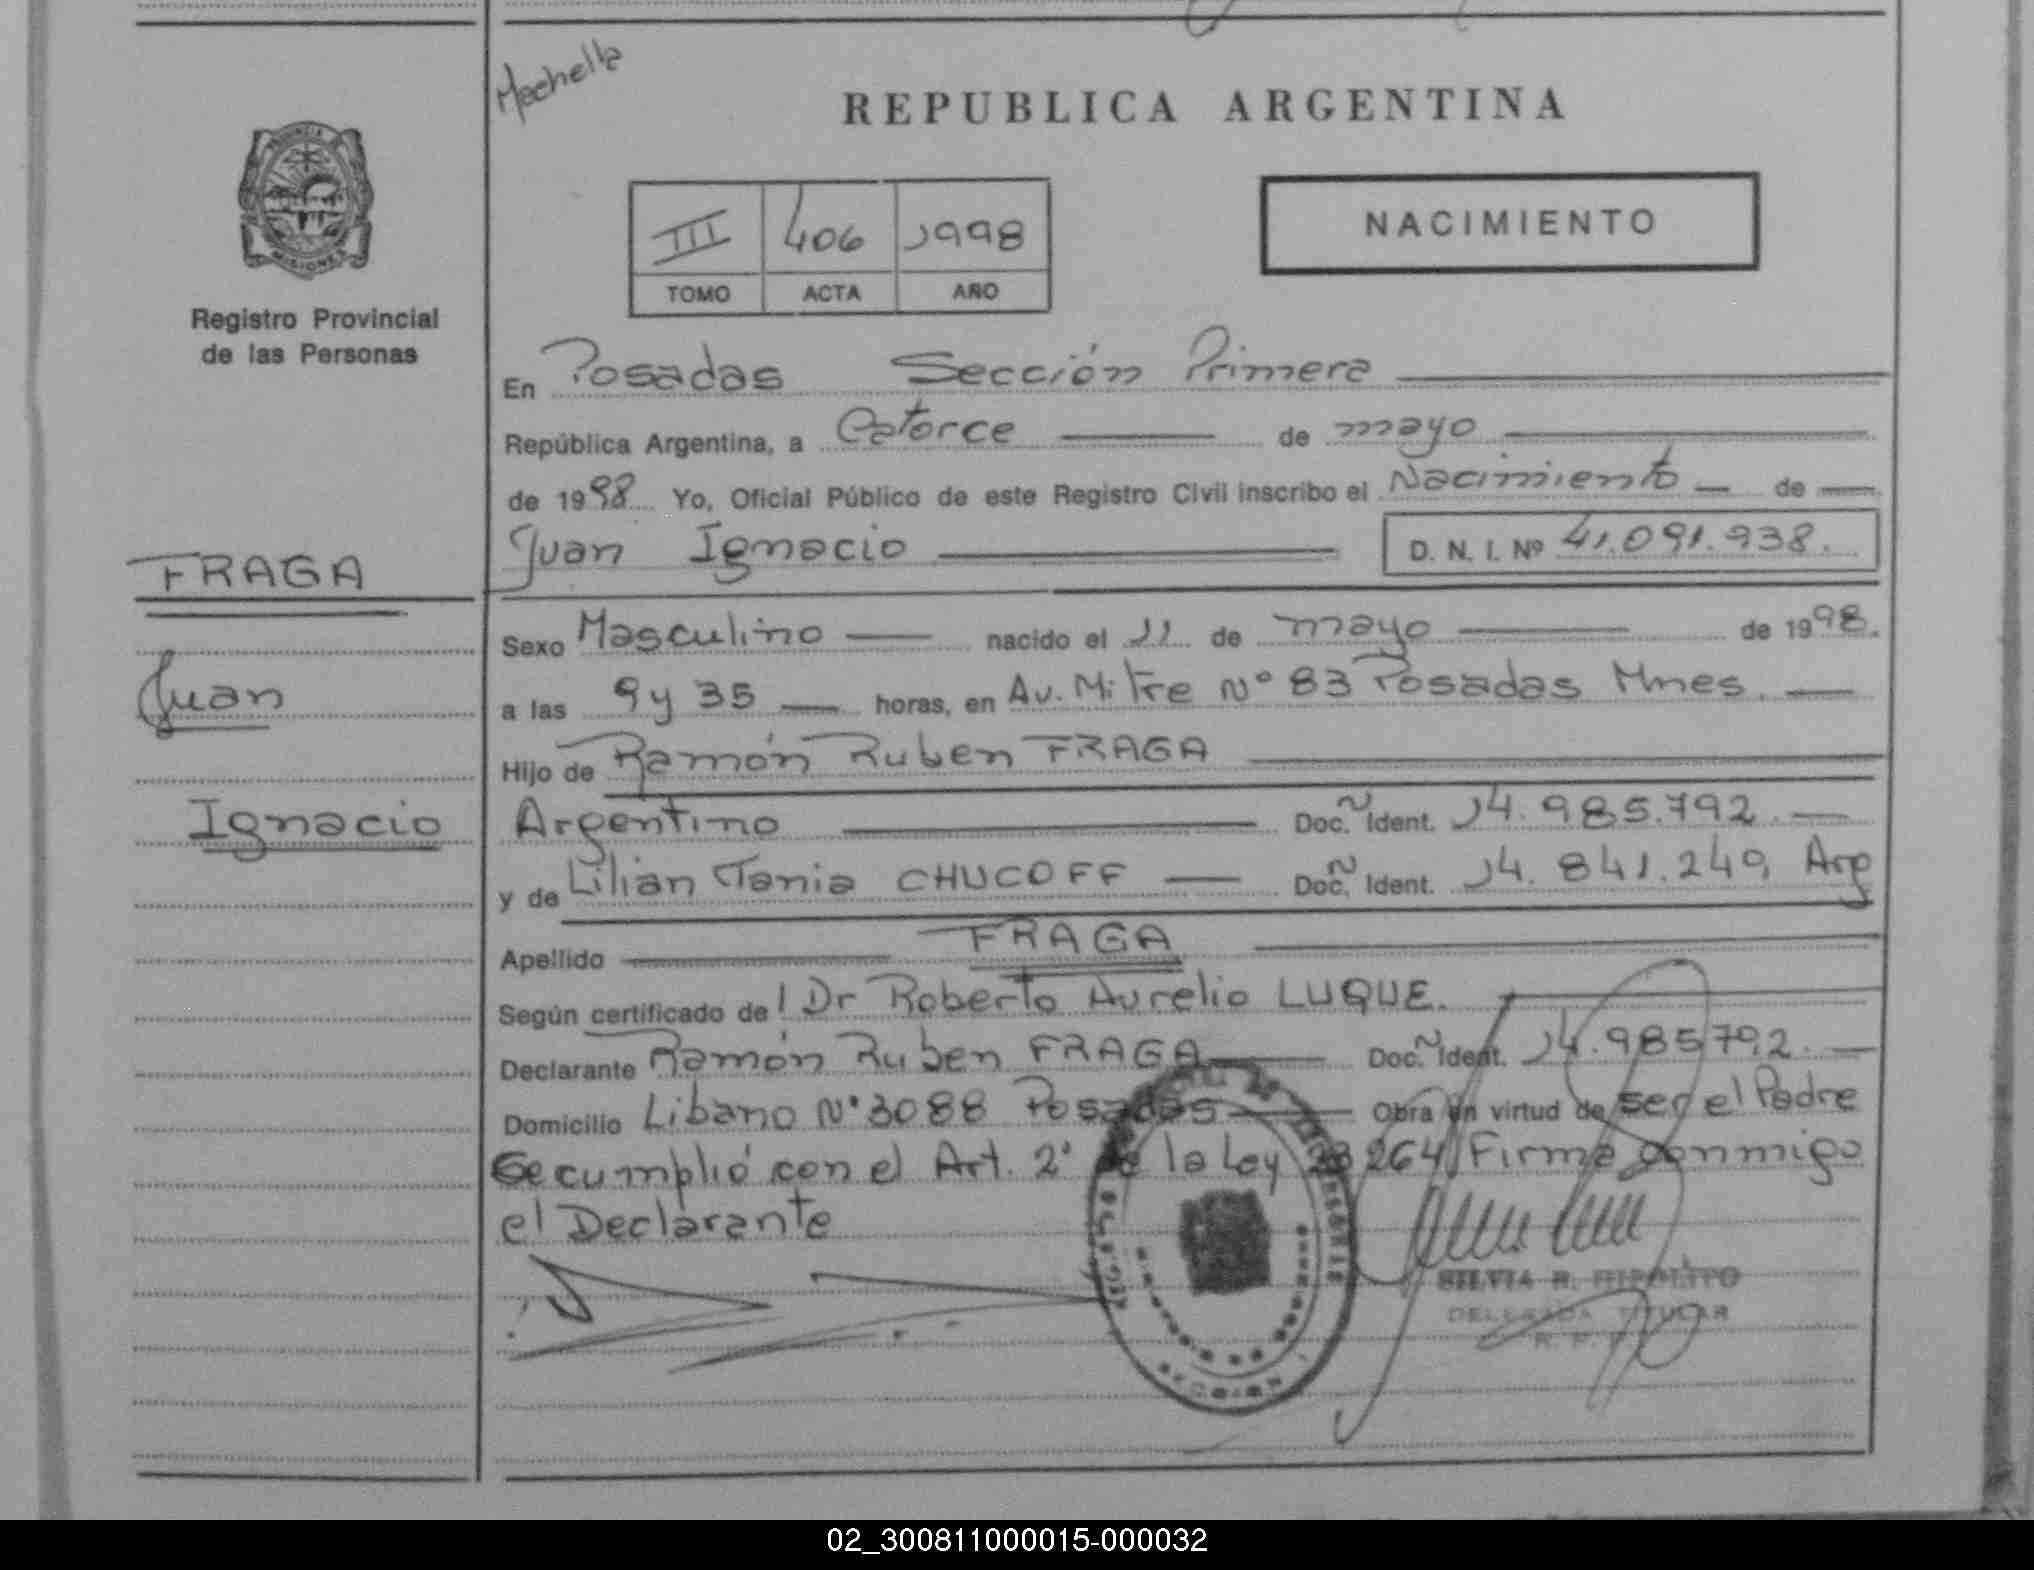 Mechella
REPUBLICA ARGENTINA
PROVINCIA
MISIONES
III 406 1998
TOMO ACTA AÑO
NACIMIENTO
Registro Provincial
de las Personas
En Posadas Sección Primera
República Argentina, a Catorce de mayo
de 1998 Yo, Oficial Público de este Registro Civil inscribo el Nacimiento de
Juan Ignacio D. N. I. Nº 41.091.938.
FRAGA
Juan
Ignacio
Sexo Masculino nacido el 11 de mayo de 1998.
a las 9 y 35 horas, en Av. Mitre Nº 83 Posadas Mnes.
Hijo de Ramón Ruben FRAGA
Argentino Doc. Ñ Ident. 14.985.792.
y de Lilian Tania CHUCOFF Doc. Ñ Ident. 14.841.249, Arg
Apellido FRAGA
Según certificado del Dr Roberto Aurelio LUQUE.
Declarante Ramón Ruben FRAGA Doc. Ñ Ident. 14.985792.
Domicilio Libano Nº 3088 Posadas Obra en virtud de ser el Padre
Se cumplió con el Art. 2º de la Ley 23264 Firma conmigo
el Declarante
SILVIA R. HIPOLITO
DELEGADA TITULAR
SECCION
02_300811000015-000032